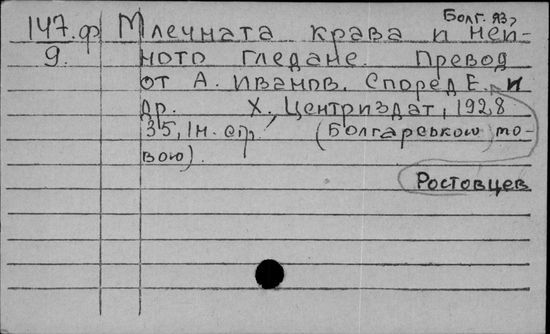 Болг. яз.
147.ф Млечната крава и ней-
9. ното гледане. Превод
от А. Иванов. Според Е. и
др. Х., Центриздат, 1928
35, 1н. стр. (Болгарською мо-
вою).
Ростовцев